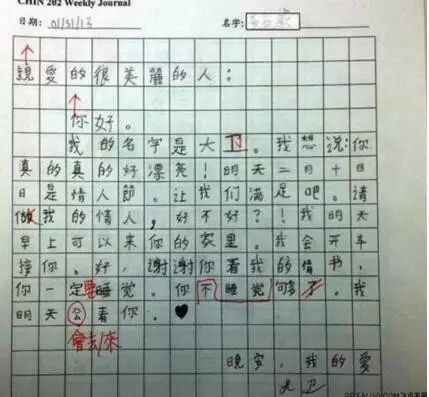 CHIN 202 Weekly Journal
日期: 01/31/13 名字:
親愛的很美麗的人：
你好。
我的名字是大卫。我想说:你
真的真的好漂亮！明天二月十日
日是情人節。让我们满足吧。请
做我的情人，好不好？！我明天
早上可以来你的家里。我会开车
接你。好，谢谢你看我的情书，
你一定要睡觉。你不睡觉够了。我
明天公看你。♥
會去/來
晚安，我的爱
大卫